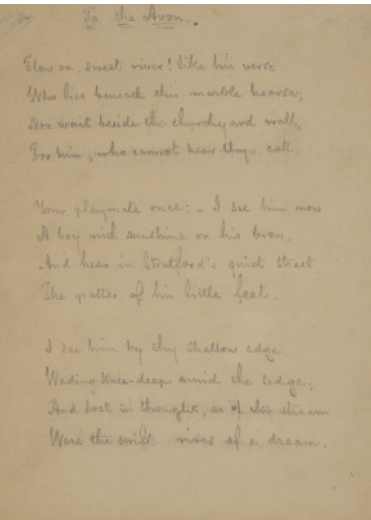 To the Avon.
Flow on, sweet river! like his verse
Who lies beneath this marble hearse,
Nor wait beside the churchyard wall
For him, who cannot hear thy call.
Your playmate once: – I see him now
A boy with sunshine on his brow,
And hear in Stratford's quiet street
The patter of his little feet.
I see him by thy shallow edge
Wading knee-deep amid the sedge;
And lost in thought, as if thy stream
Were the swift river of a dream.